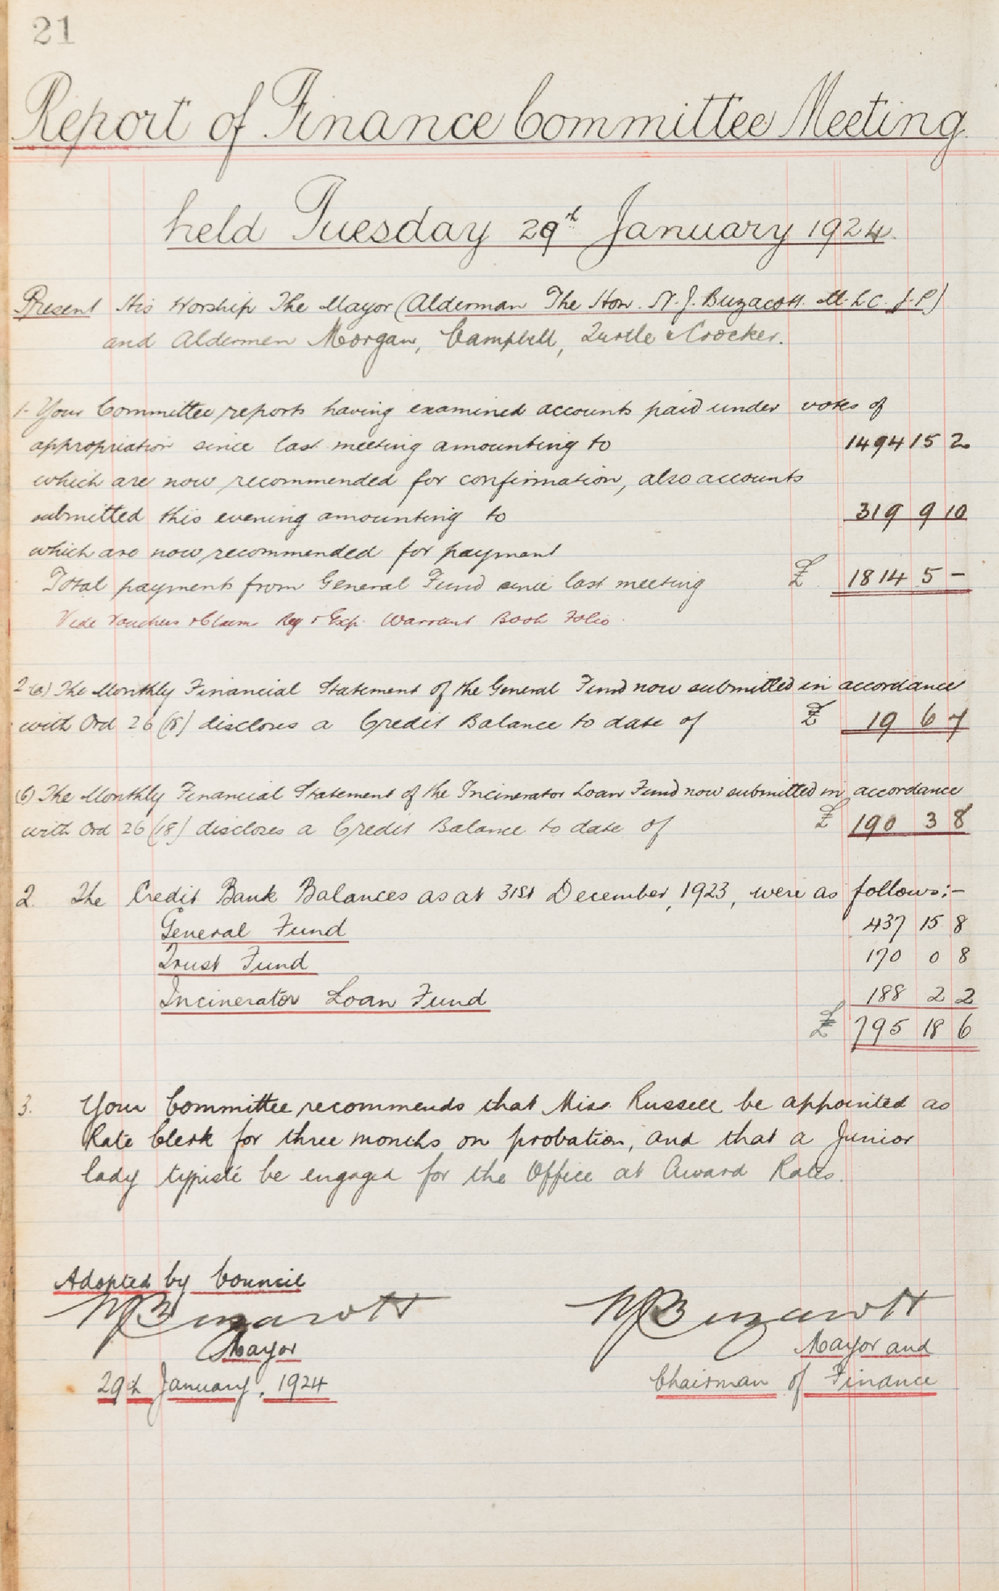 21
Report of Finance Committee Meeting
held Tuesday 29th January 1924.
Present His Worship The Mayor (Alderman The Hon. N. J. Buzacott. M.L.C. J.P.)
and Aldermen Morgan, Campbell, Turtle & Crocker.
1- Your Committee reports having examined accounts paid under votes of
appropriation since last meeting amounting to 1494 15 2
which are now recommended for confirmation, also accounts
submitted this evening amounting to 319 9 10
which are now recommended for payment
Total payments from General Fund since last meeting £ 1814 5 -
Vide Vouchers & Claim Reg & Exp. Warrant Book Folio
2 (a) The Monthly Financial Statement of the General Fund now submitted in accordance
with Ord 26 (18) discloses a Credit Balance to date of £ 19 6 7
(b) The Monthly Financial Statement of the Incinerator Loan Fund now submitted in accordance
with Ord 26 (18) discloses a Credit Balance to date of £ 190 3 8
2. The Credit Bank Balances as at 31st December, 1923, were as follows:-
General Fund 437 15 8
Trust Fund 170 0 8
Incinerator Loan Fund 188 2 2
£ 795 18 6
3. Your Committee recommends that Miss Russell be appointed as
Rate Clerk for three months on probation, and that a Junior
lady typiste be engaged for the Office at Award Rates.
Adopted by Council
NJBuzacott
Mayor
29th January, 1924
NJBuzacott
Mayor and
Chairman of Finance